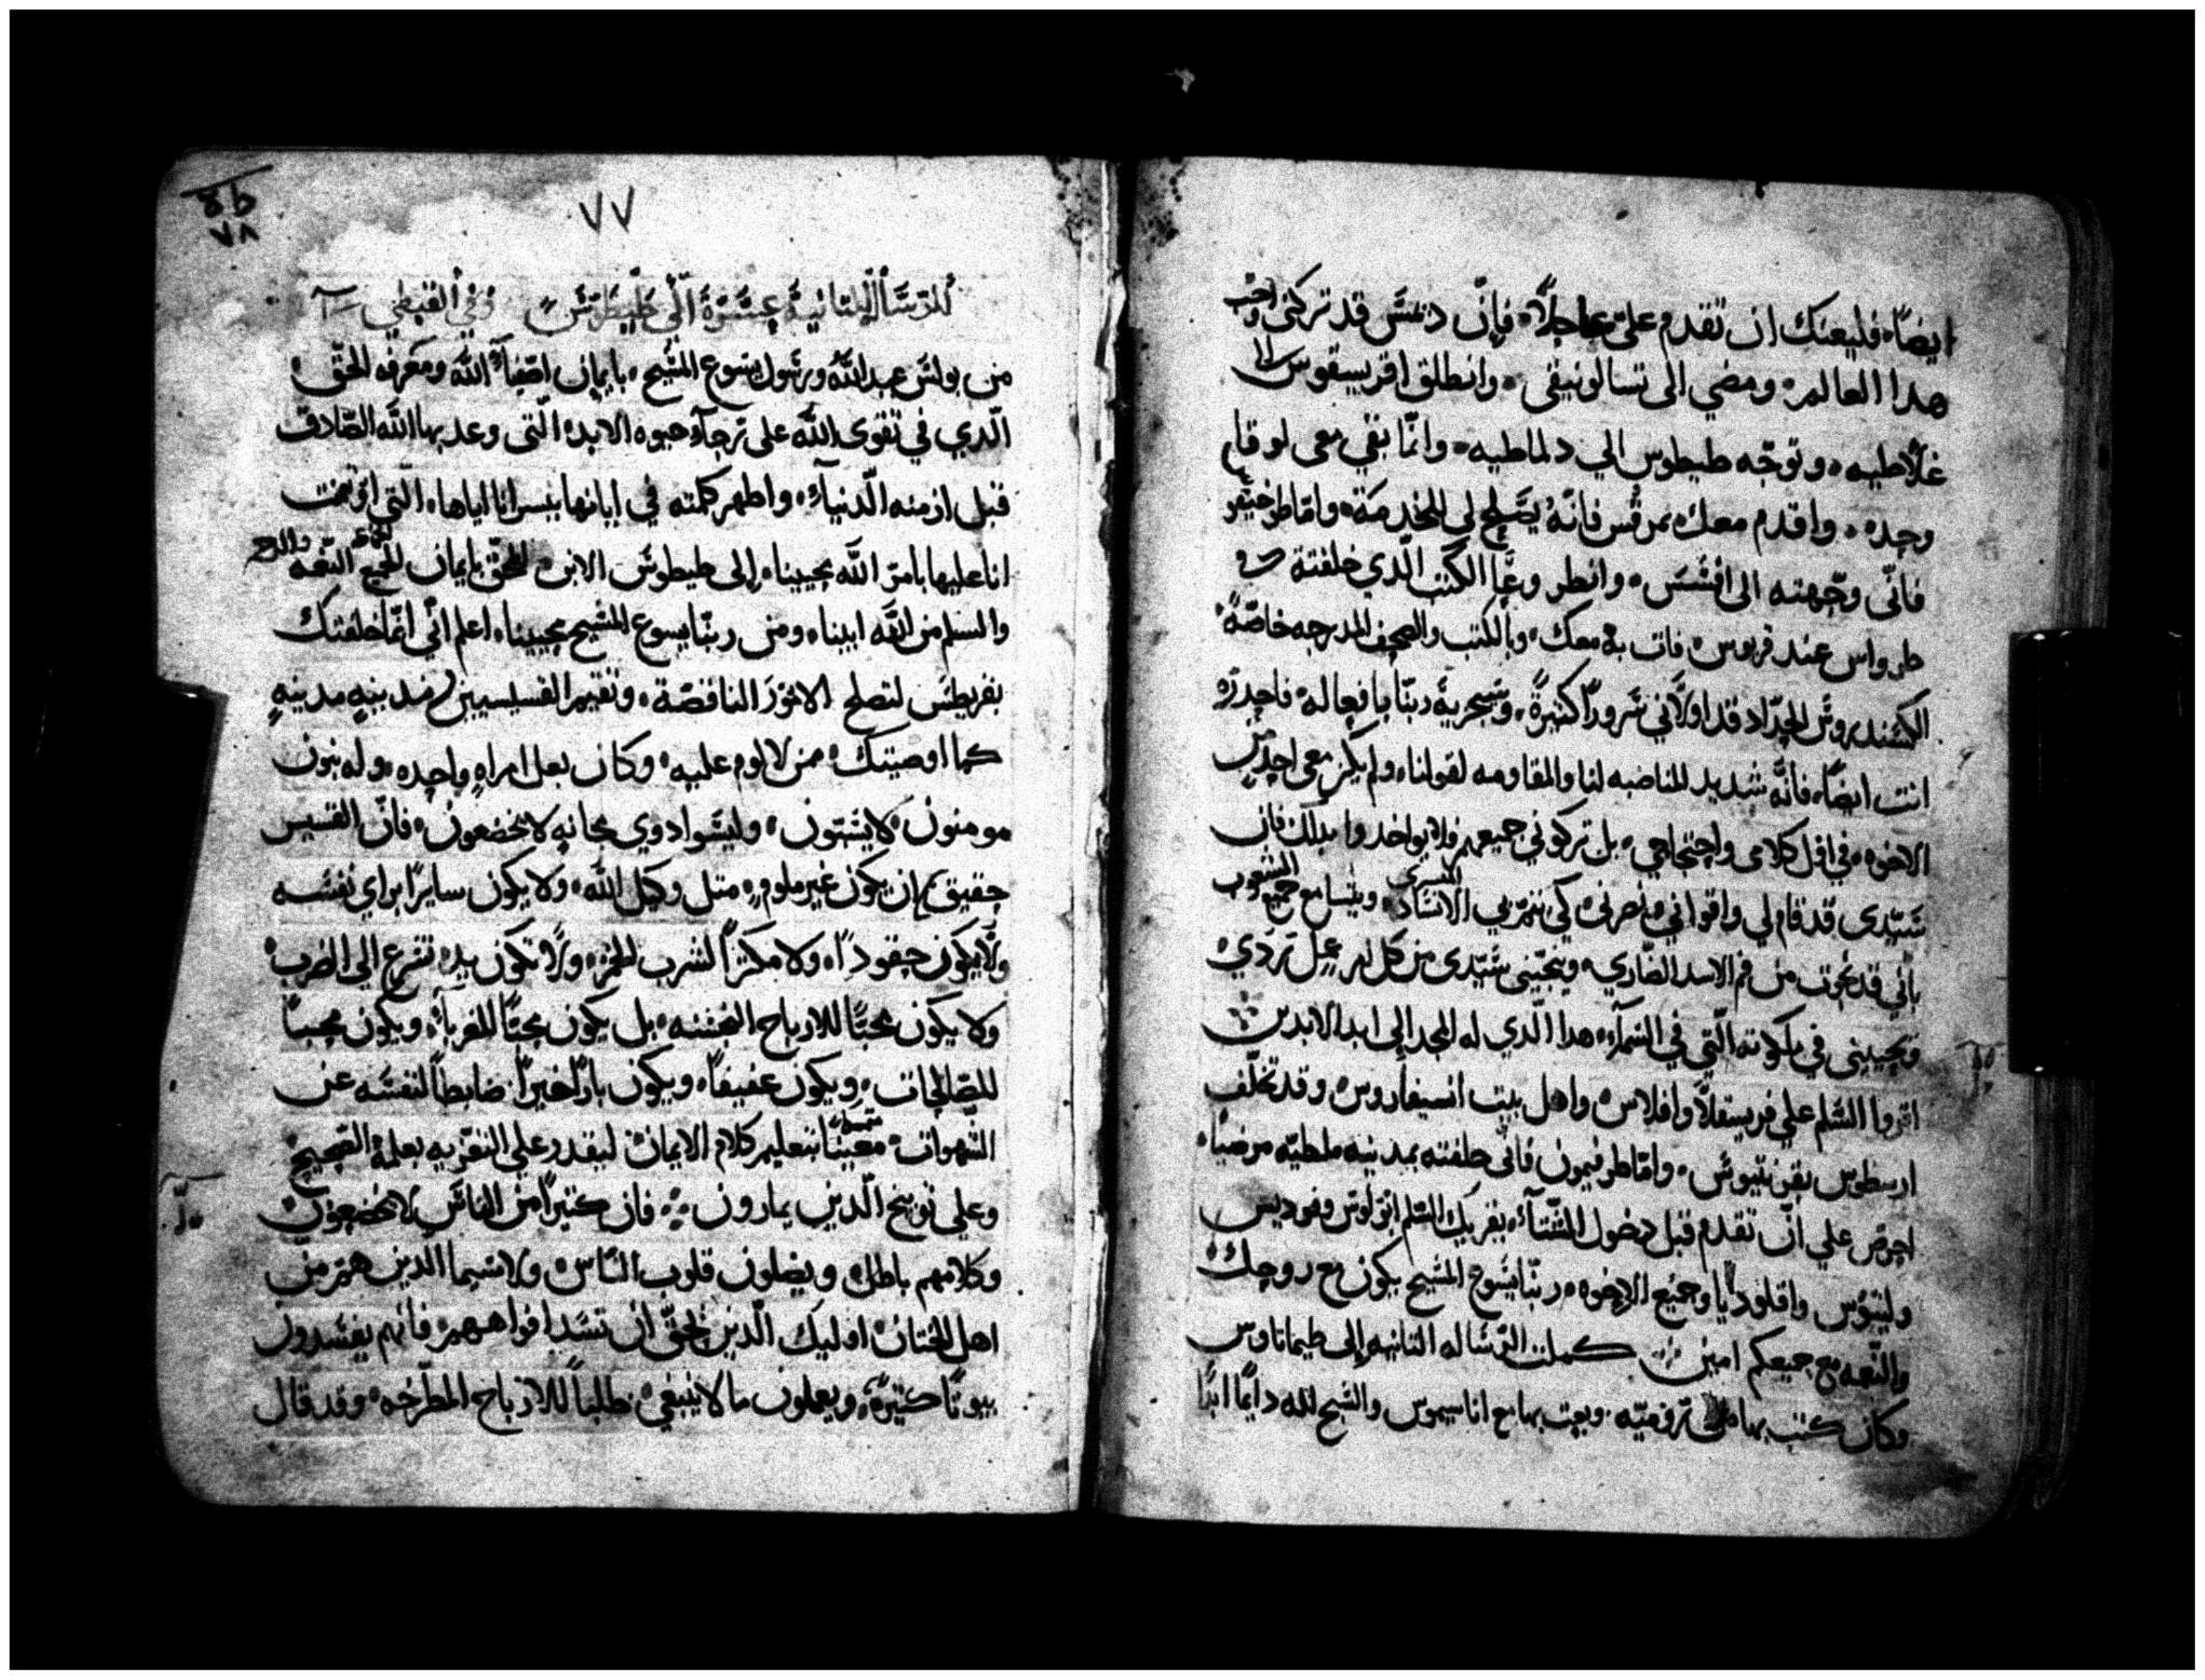 ايضًا. فليعنك ان تقدم علىّ عاجلاً. فإنّ دمسّ قد تركنى واحب
هدا العالم. ومضي الى تسالونيقى. وانطلق اقريسقوس الى
غلاطيه. وتوجّه طيطوس الي دلماطيه. وانّما بقي معى لوقا
وحده. واقدم معك بمرقس فانّهُ يَصلح لي للخدمَة. وامّا طوخيقو
فانّى وجّهته الى افسَسَ. وانطر وعَّا الكتب الّدي خلفتة
طرواس عند قربوس فات به معك. وبالكتب والصحف المدرجه خاصّةً.
الكسَندروسَ الحدّاد قد اولاَني شرورًا كثيرةً. وسَيجزيهَ ربّنا بافعاله. فاحدرَه
انت ايضًا. فانَّه شديد المناصبه لنا والمقاومه لقولنا. ولم يكن معى احد من
الاخوه. في اول كلامى واحتجاجي. بل تركوني جميعهم فلا يواخدوا بدلك فان
سَيّدى قد قام لي وقواني كي تتمّ بي البشرى ويتسامع جميع الشعوب
باني قد نجوت من فم الاسد الضّاري. وينجّينى سَيّدى من كل امر عمل ردي
ويحيينى في ملكوته الّتي في السَمآء. هدا الّدي له المجد الى ابد الابدين
اقروا السَّلم علي فريسقلاّ واقلاس واهل بيت انسيفاروس. وقد تخلّف
ارسطوس بقورنتيوسَ. وامّا طرفيمون فانى خلفته بمدينه ملطيّه مرضيًا.
احرص علي انّ تقدم قبل دخول الشّتآء. يقريك السَّلم اوبولوس وفوديس
ولينوُس واقلوديا وجميَع الاخوه. ربّنا يسَوع المسَيح يكون مع روحك
والنّعمه مع جميعكم امين كملت الرّسَاله الثانيه الى طيماتاوس
وكان كتب بها من روميّه. وبعت بها مع اناسيموس والسبح لله دايمًا ابدًا
٧٧
٧٨
الرسَالة الثانية عشَرَة الَى طيطوسَ وفي القبطي
من بولسَ عبد اللّه ورسَول يسَوع المسَيح. بايمان اصفيآء اللّه ومعَرفه الحَقّ.
الّدي في تقوى اللّه على رجآء حيوه الابد. الّتى وعد بها اللّه الصّادق
قبل ازمنه الّدنيآء. واطهر كلمته في ابانها ببسرانا اياها. الّتى اوتمنت
انا عليها بامر اللّه محيينا. إلى طيطوسَ الابن الحَقّ بايمان الجميع النّعمه
والسلم من اللّه ابينا. ومن ربّنا يسوع المسَيح محيينا. اعلم انّي انّما خلفتك
بقريطسَ لتصلح الامورَ الناقصَة. وتقيم القسيسيين في مدينهٍ مدينهٍ
كما اوصيتك. من لا لوم عليه. وكان بعل امراهٍ واحده. وله بنون
مومنون لا يشتون. وليسَوا دوي مجانه لا يخضعون. فانّ القسيس
حقيق ان يكون غير ملومٍ. متل وكيل اللّه. ولا يكون سايرًا براي نفسَه
ولا يكون حقودًا. ولا مكثرًا لشرب الخمر. ولا تكون يده تسَرع الى الضرب.
ولا يكون محبًّا للارباح النجسَه. بل يكون محبًّا للغربآء. ويكون محبًا
للصّالحات. ويكون عفيفًا. ويكون بارًا خيرًا ضابطاً لنفسَه عن
الشّهوات. معَنيًّا بتعليم كلام الايمان ليقدر على التعزيه بعلمهِ الصّحيح
وعلى توبيخ الّدين يمارون. فان كثيراً من الناسَ لا يخضعون
وكلامهم باطل. ويضلون قلوب النّاس. ولا سَيما الدين همَ من
اهل الختان. اوليك الّدين يَحقّ ان تسَد افواههم. فانهم يفسَدون
بيوتًا كثيرةً. ويعلمون ما لا ينبغي. طلبًا للارباح المطّرحه. وقد قال